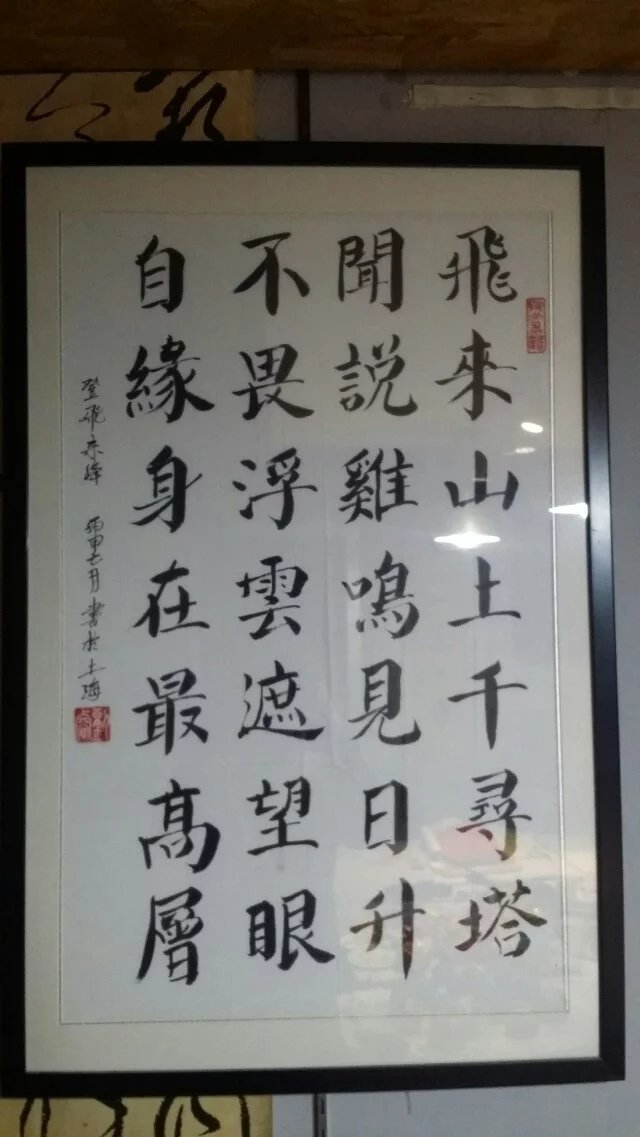 飛來山上千尋塔
聞説雞鳴見日升
不畏浮雲遮望眼
自緣身在最高層
登飛来峰 丙申七月書於上海